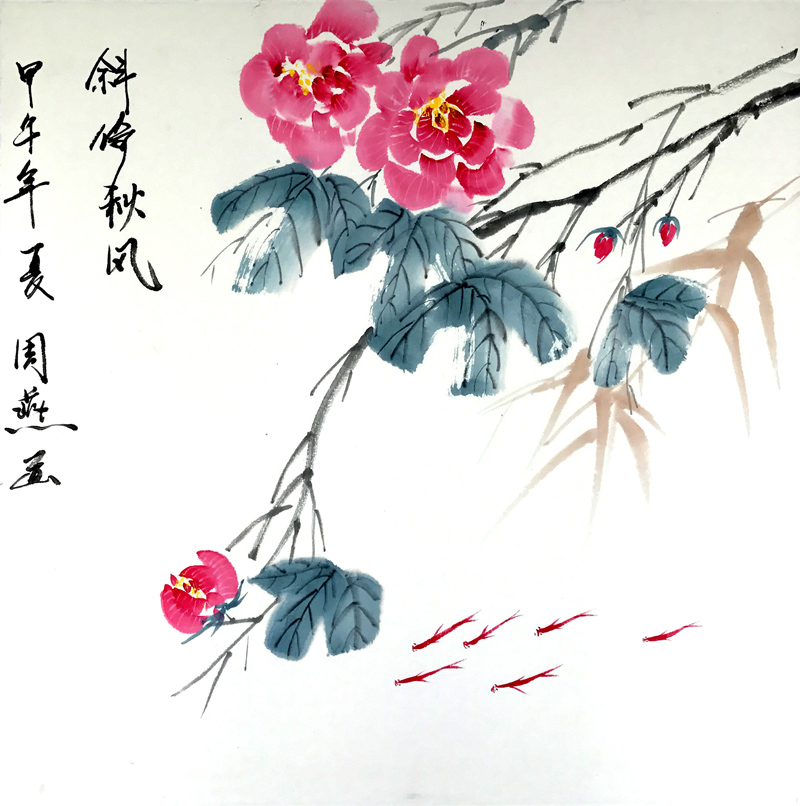 斜倚秋风
甲午年夏 周燕画